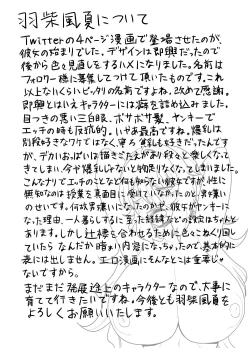 羽柴風夏について
Twitterの4ページ漫画で登場させたのが、
彼女の始まりでした。デザインは即興だったので
後から色々見直しをするハメになりました。名前は
フォロワー様に募集してつけて頂いたものです。これ
以上ないくらいピッタリの名前ですよね。改めて感謝。
即興とはいえキャラクターには癖を詰め込みました。
目つきの悪い三白眼、ボサボサ髪、ヤンキーで
エッチの時も反抗的。いやあ最高ですね。爆乳は
別段好きなワケではなく、寧ろ貧乳も好きだったんです
が、デカいおっぱいは描きごたえがあり段々と楽しくなっ
てきてしまい、今や爆乳じゃないと物足りなくなってしまいました。
こんなナリでエッチのことなど何も知らない彼女ですが、性に
無知なのは授業を真面目に聴いていなかったのと、男嫌い
のせいです。何故男嫌いになったのかとか、彼女がヤンキーに
なった理由、一人暮らしするに至った経緯などの設定はちゃんと
あります。しかし辻褄を合わせるために色々こねくり回し
ていたらなんだか暗い内容になっちゃったので、基本的に
表には出しません。エロ漫画にそんなことは重要じゃ
ないですから。
まだまだ発展途上のキャラクターなので、大事に
育てて行きたいですね。今後とも羽柴風夏を
よろしくお願いいたします。